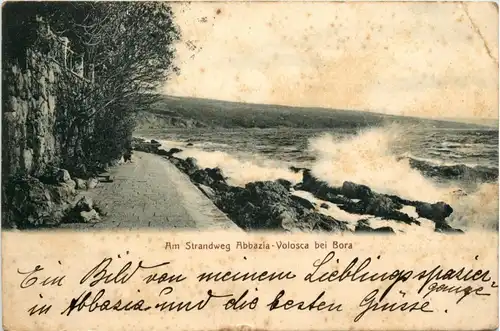 Am Strandweg Abbazia-Volosca bei Bora
Ein Bild von meinem Lieblingsspazier-
gange
in Abbazia und die besten Grüsse.